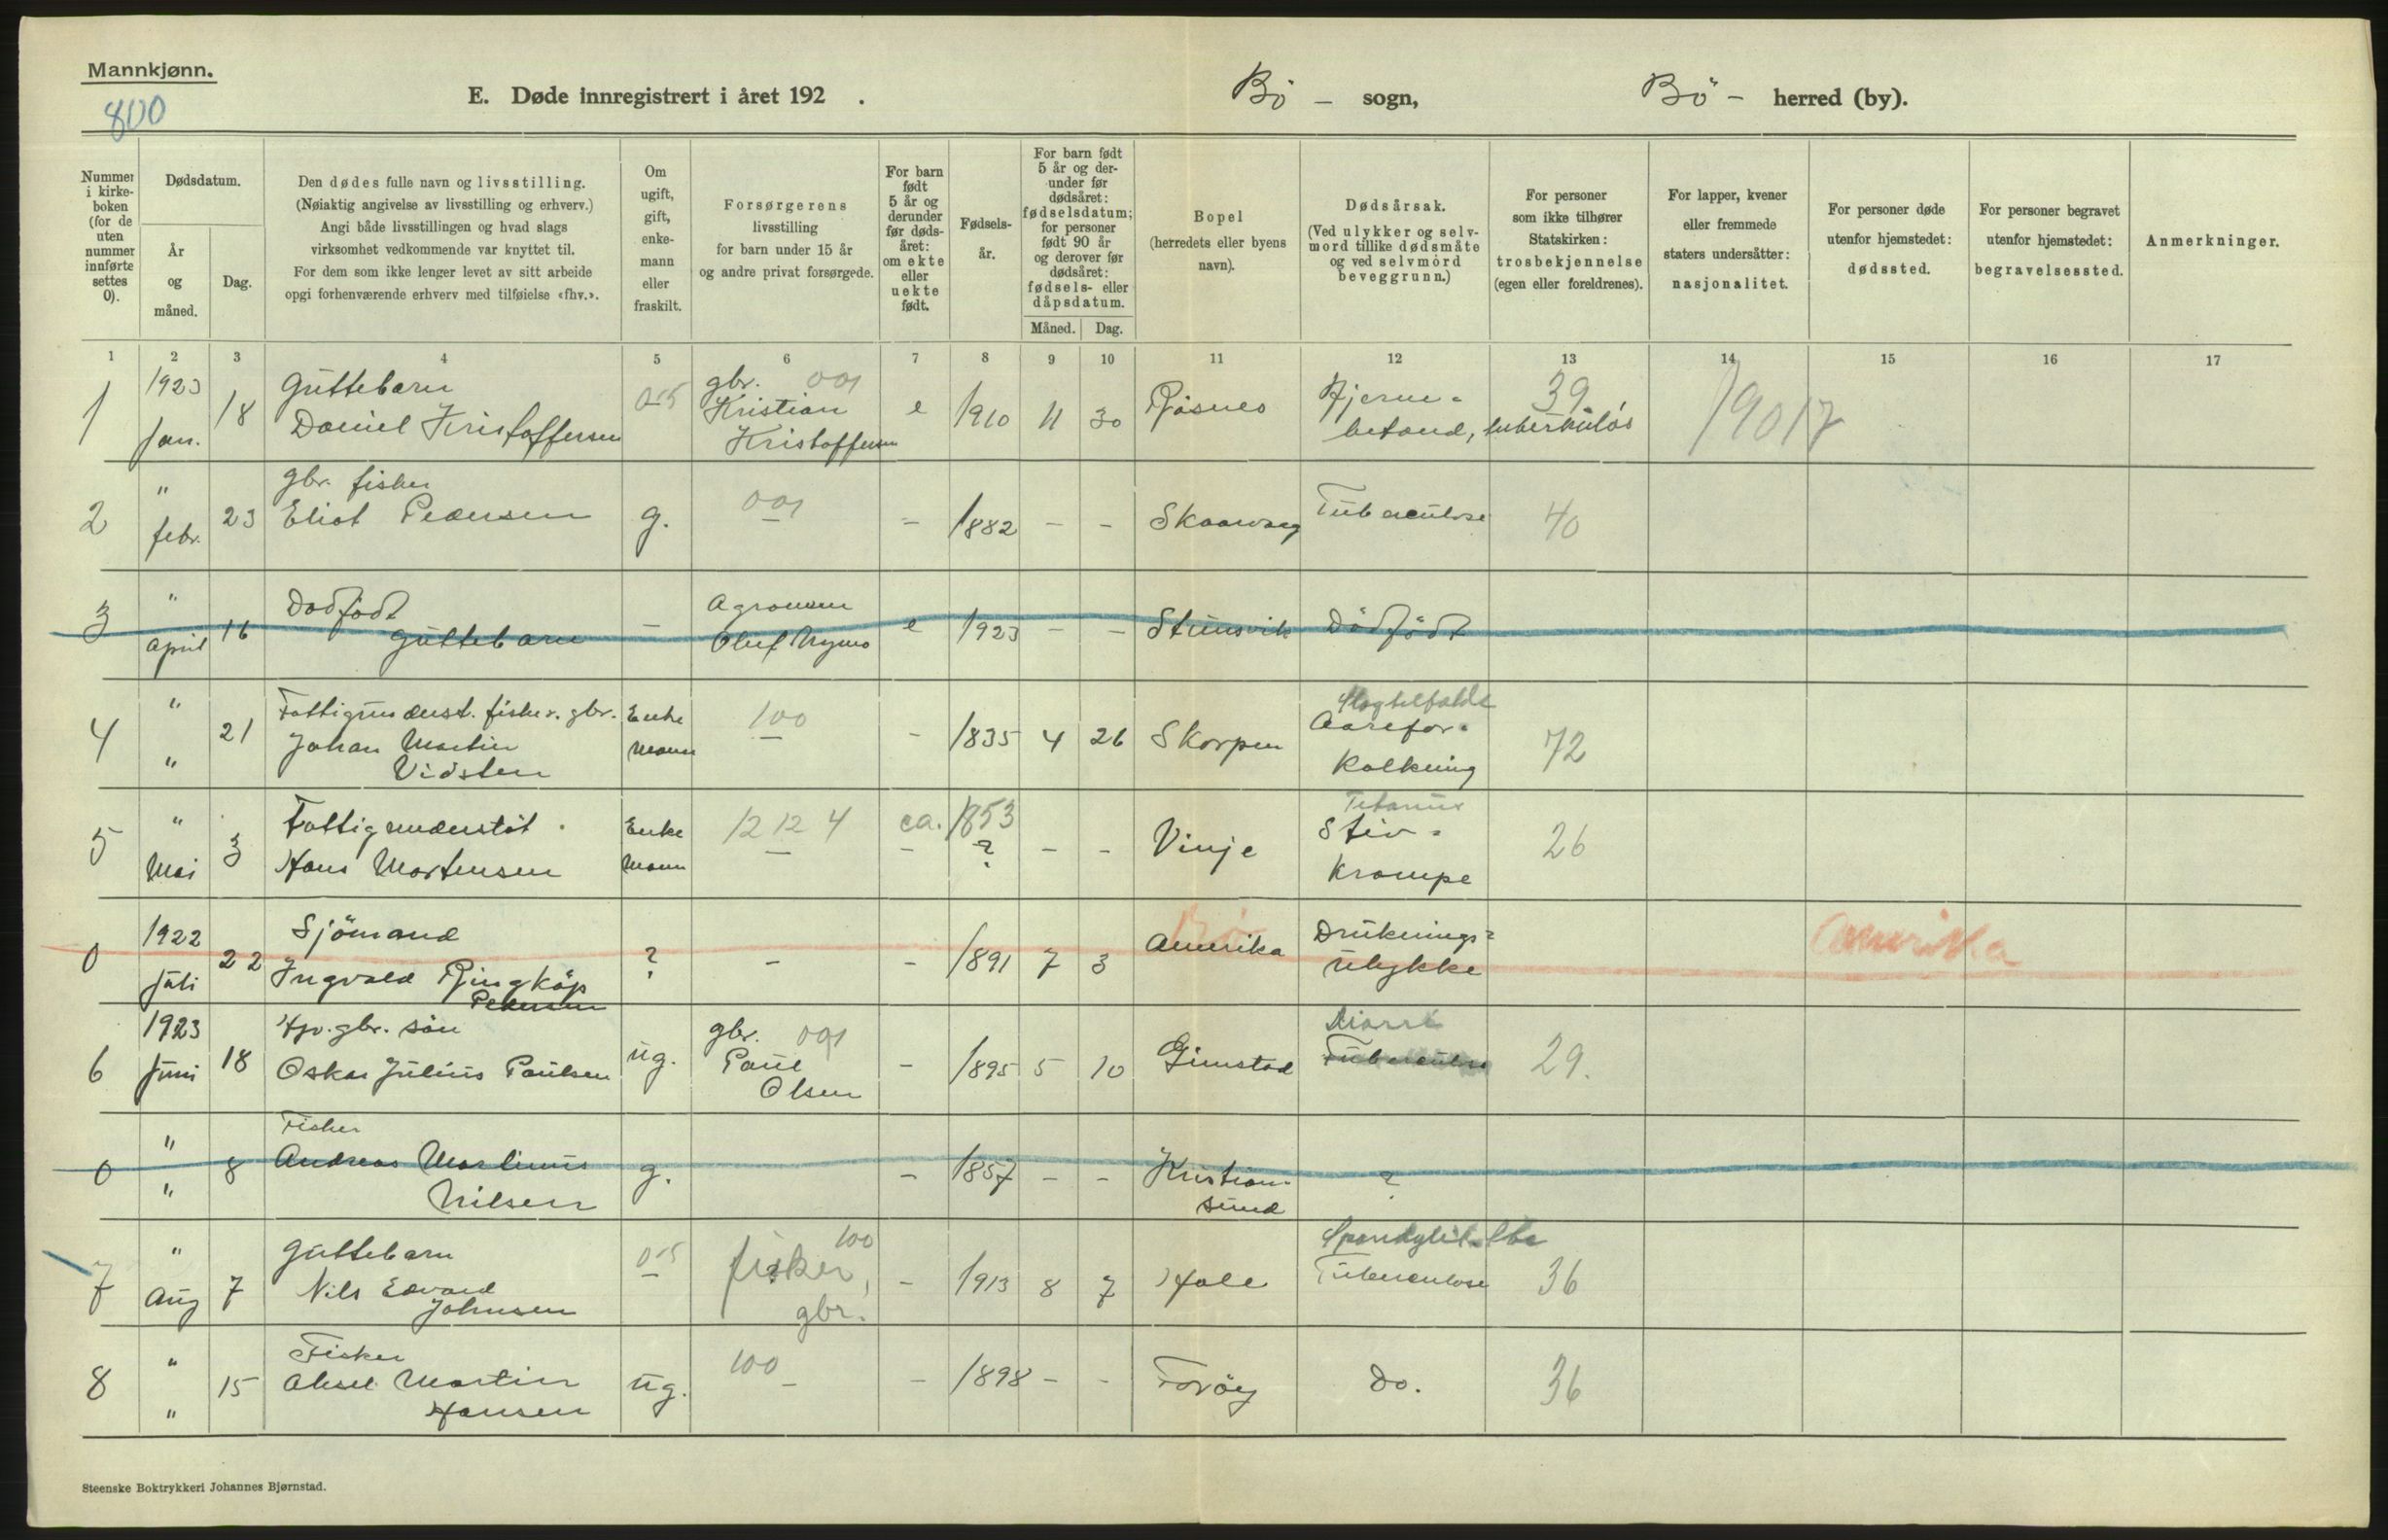 Mannkjønn.
800
E. Døde innregistrert i året 192 .
Bö - sogn,
Bö - herred (by).
Nummer i kirkeboken (for de uten nummer innførte settes 0).
Dødsdatum.
År og måned.
Dag.
Den dødes fulle navn og livsstilling.
(Nøiaktig angivelse av livsstilling og erhverv.)
Angi både livsstillingen og hvad slags
virksomhet vedkommende var knyttet til.
For dem som ikke lenger levet av sitt arbeide
opgi forhenværende erhverv med tilføielse «fhv.».
Om ugift, gift, enkemann eller fraskilt.
Forsørgerens
livsstilling
for barn under 15 år
og andre privat forsørgede.
For barn født 5 år og derunder før dødsåret: om ekte eller uekte født.
Fødselsår.
For barn født 5 år og derunder før dødsåret: fødselsdatum; for personer født 90 år og derover før dødsåret: fødsels- eller dåpsdatum.
Måned. Dag.
Bopel
(herredets eller byens
navn).
Dødsårsak.
(Ved ulykker og selvmord tillike dødsmåte og ved selvmord beveggrunn.)
For personer
som ikke tilhører
Statskirken:
trosbekjennelse
(egen eller foreldrenes).
For lapper, kvener
eller fremmede
staters undersåtter:
nasjonalitet.
For personer døde
utenfor hjemstedet:
dødssted.
For personer begravet
utenfor hjemstedet:
begravelsessted.
Anmerkninger.
1 2 3 4 5 6 7 8 9 10 11 12 13 14 15 16 17
1 1923 Jan. 18 Guttebarn Daniel Kristoffersen 005 gbr. 001 Kristian Kristoffersen e 1910 11 30 Rösnes Hjerne- betænd, tuberkulös 39 19017
2 " febr. 23 gbr. fisker Eliot Pedersen g. 001 - 1882 - - Skaarvag Tuberculose 40
3 " April 16 Dødfödt Guttebarn - Agronom Oluf Nymo e 1923 - - Stunsvik Dödfödt
4 " " 21 Fattigunderst. fisker. gbr. Johan Martin Vidsten Enke mann 100 - 1835 4 26 Skorpen Slagtilfælde Aarefor- kalkning 72
5 " Mai 3 Fattigunderstöt. Hans Mortensen Enke mann 12 12 4 - ca. 1853 ? - - Vinje Tetanus Stiv- krampe 26
0 1922 Juli 22 Sjömand Ingvald Ringköp Pedersen ? - - 1891 7 3 Bö Amerika Druknings- ulykke Amerika
6 1923 Juni 18 Hjv. gbr. sön Oskar Julius Paulsen ug. gbr. 001 Paul Olsen - 1895 5 10 Gimstad Diarré Tuberculose 29.
0 " " 8 Fisker Andreas Martinus Nilsen g. - 1857 - - Kristian- sund ?
7 " Aug 7 Guttebarn Nils Edvard Johnsen 005 100 fisker, gbr. - 1913 8 7 Hole Spondylit. tbc Tuberculose 36
8 " " 15 Fisker Aksel Martin Hansen ug. 100 - - 1898 - - Foröy Do. 36
Steenske Boktrykkeri Johannes Bjørnstad.